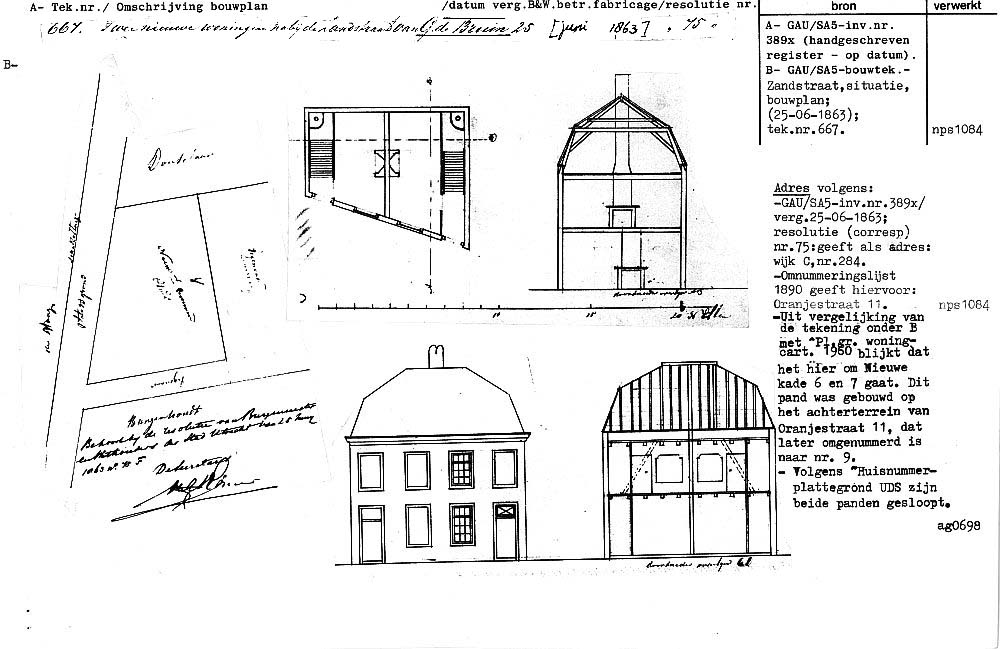 A- Tek.nr./ Omschrijving bouwplan /datum verg.B&W.betr.fabricage/resolutie nr. bron verwerkt
667. Twee nieuwe woningen nabij de Zandstraat van G. de Bruin 25 [juni 1863] , 75 "
B-
A- GAU/SA5-inv.nr.
389x (handgeschreven
register - op datum).
B- GAU/SA5-bouwtek.-
Zandstraat,situatie,
bouwplan;
(25-06-1863);
tek.nr.667. nps1084
Adres volgens:
-GAU/SA5-inv.nr.389x/
verg.25-06-1863;
resolutie (corresp)
nr.75:geeft als adres:
wijk C,nr.284.
-Omnummeringslijst
1890 geeft hiervoor:
Oranjestraat 11. nps1084
-Uit vergelijking van
de tekening onder B
met "Pl.gr. woning-
cart. 1960 blijkt dat
het hier om Nieuwe
kade 6 en 7 gaat. Dit
pand was gebouwd op
het achterterrein van
Oranjestraat 11, dat
later omgenummerd is
naar nr. 9.
- Volgens "Huisnummer-
plattegrond UDS zijn
beide panden gesloopt.
ag0698
10
15
20
Behoort bij de resolutie van Burgemeester
en Wethouders der Stad Utrecht van 25 Junij
1863 No. 75
De Secretaris